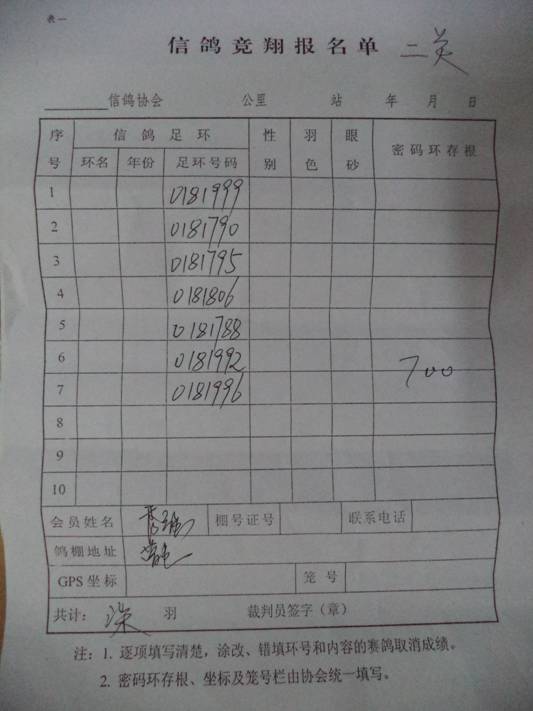 表一
信鸽竞翔报名单 二关
信鸽协会 公里 站 年 月 日
序号 信鸽足环 性别 羽色 眼砂 密码环存根
环名 年份 足环号码
1 0181999
2 0181790
3 0181795
4 0181806
5 0181788
6 0181992 700
7 0181996
8
9
10
会员姓名 棚号证号 联系电话
鸽棚地址
GPS坐标 笼号
共计： 羽 裁判员签字（章）
注：1. 逐项填写清楚，涂改、错填环号和内容的赛鸽取消成绩。
2. 密码环存根、坐标及笼号栏由协会统一填写。